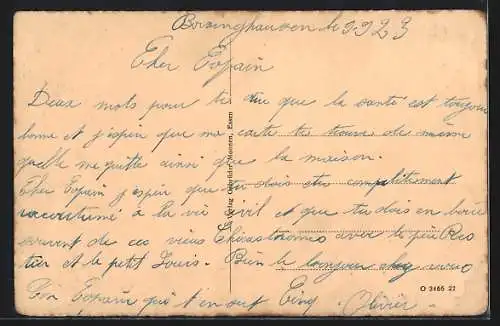 Borsinghausen le 9 9 23
Cher Copain
Deux mots pour te dire que la santé est toujours
bonne et j'espère que ma carte te trouve de meme
quelle me quitte ainsi que la maison.
Cher Copain j'espère que tu dois etre complètement
racoutumé à la vie civil et que tu dois en boire
souvent de ces vieux avec le père
et le petit Louis. Bien le bonjour chez vous
Ton Copain qui t'en sert Cinq. Olivier
Verlag Gebrüder Mensen, Essen
O 3466 22